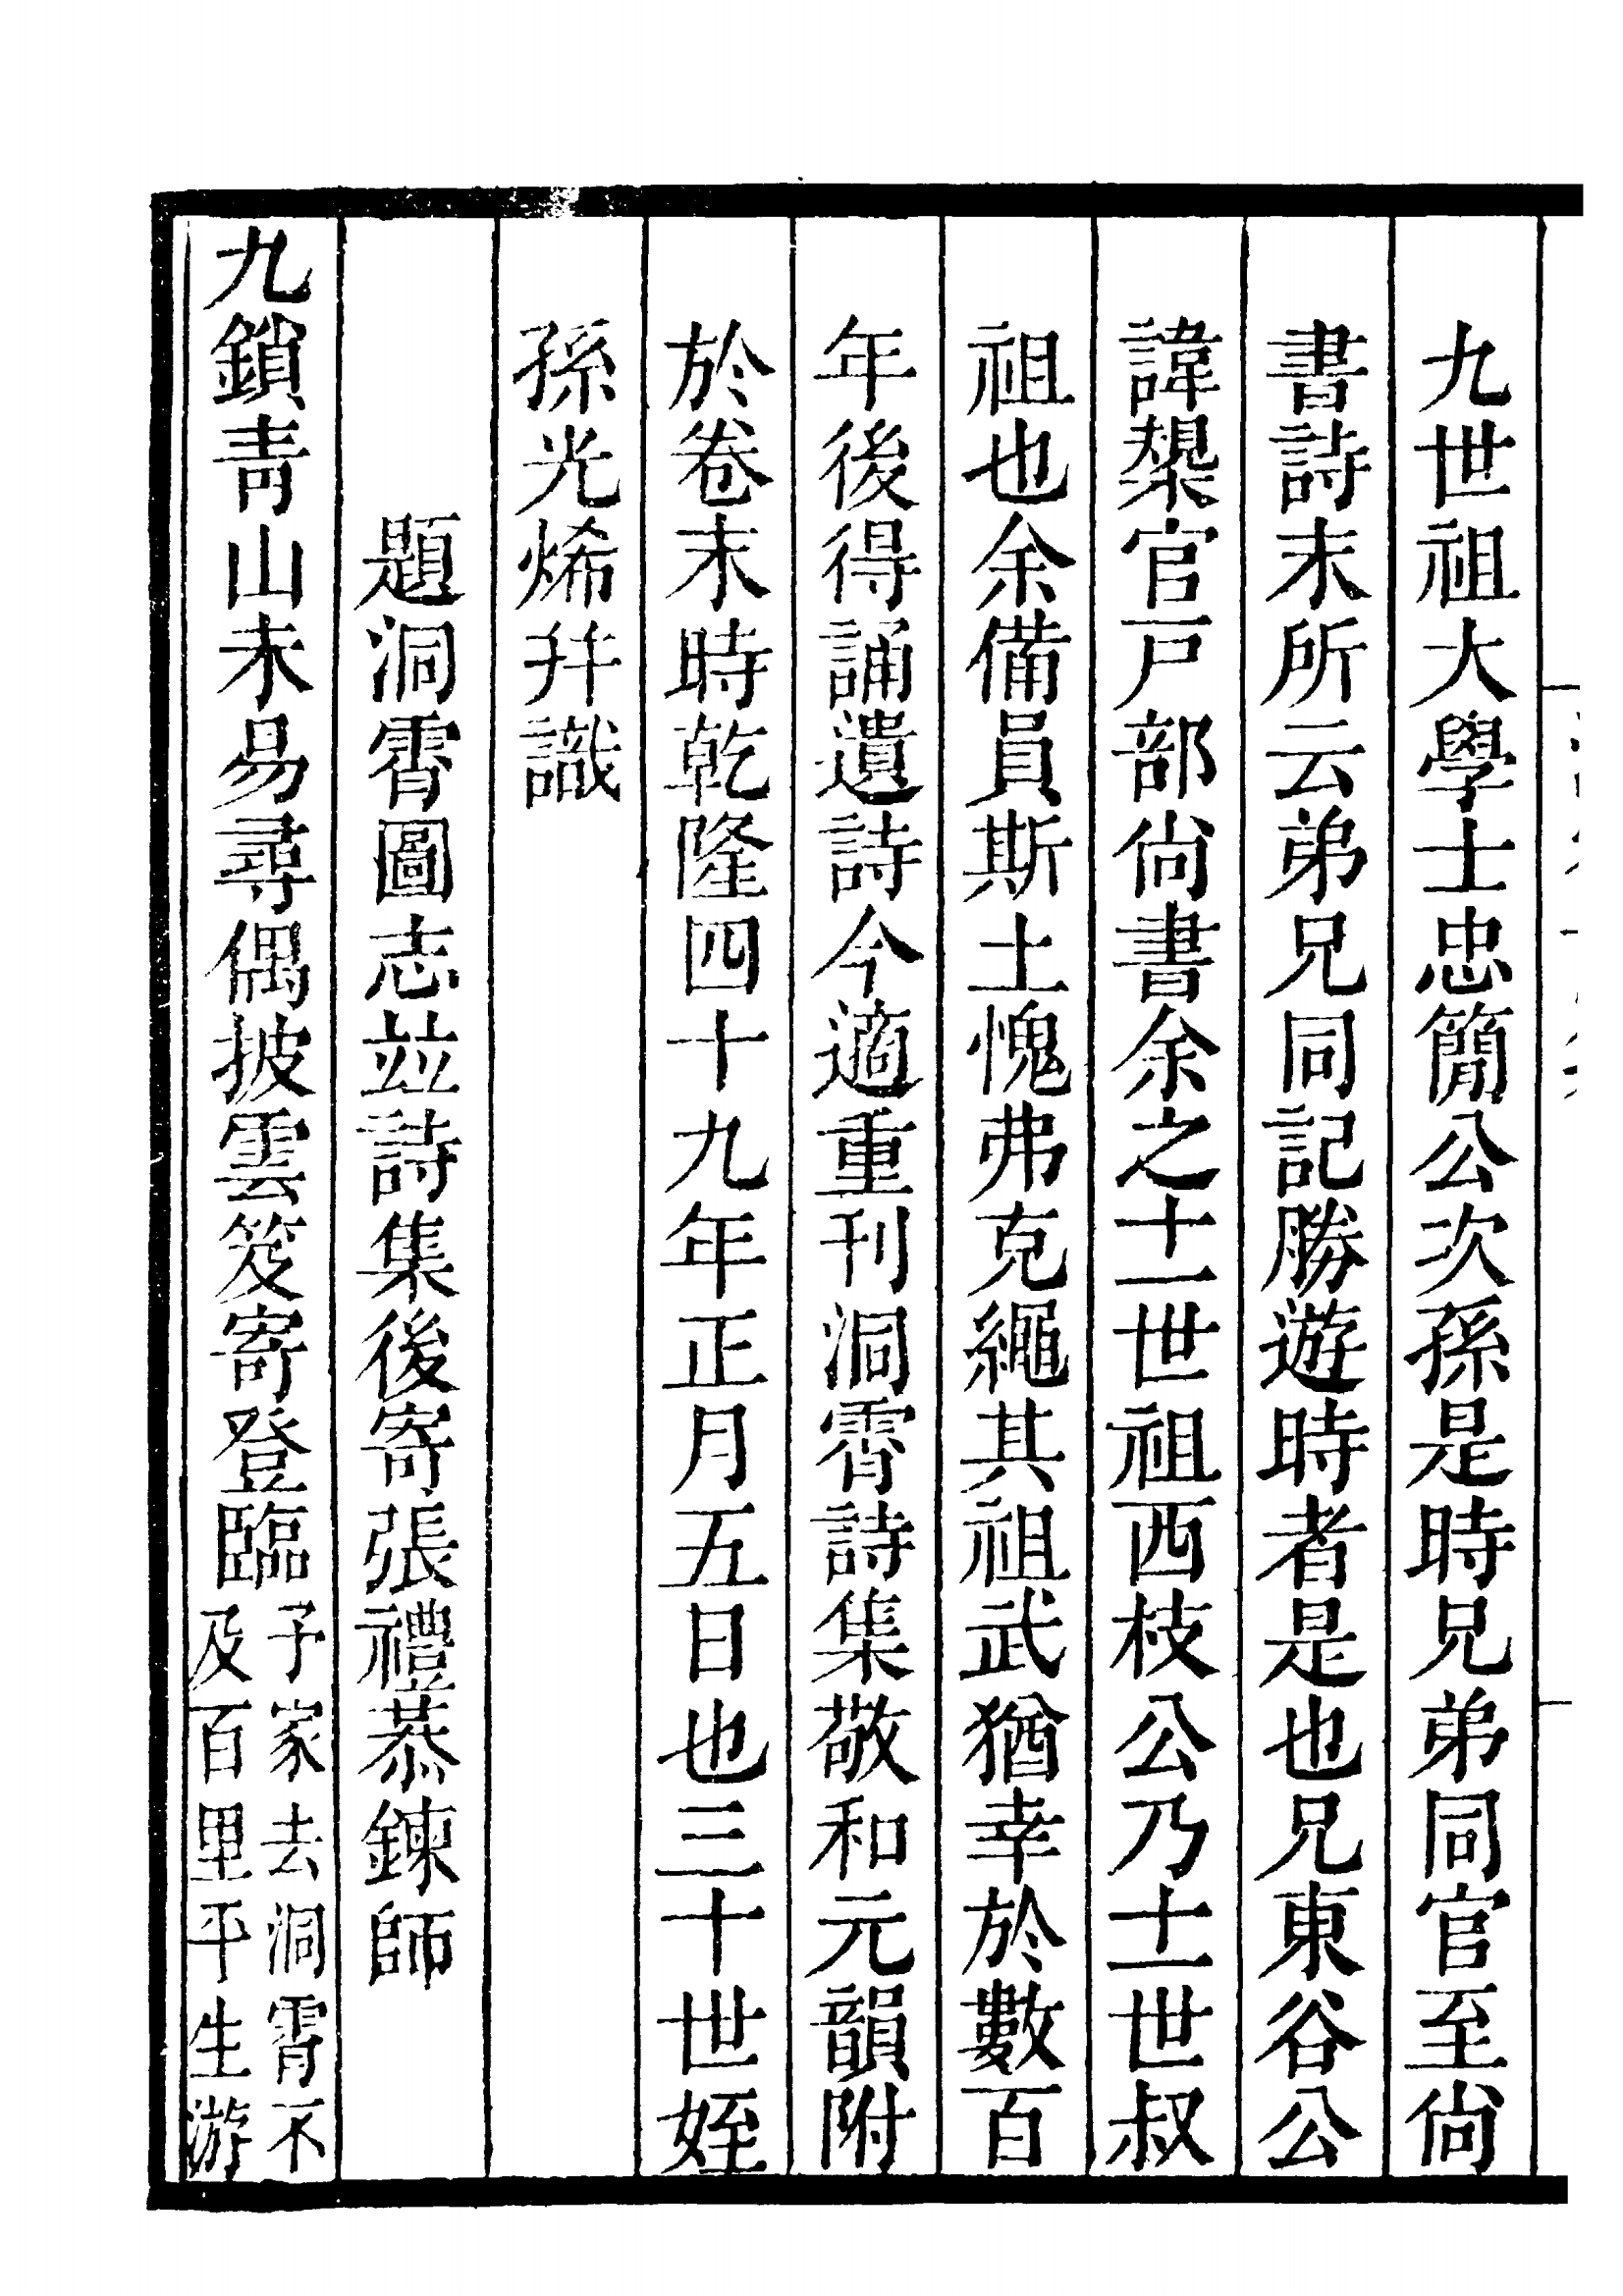 九世祖大學士忠簡公次孫是時兄弟同官至尙
書詩末所云弟兄同記勝遊時者是也兄東谷公
諱槼官戸部尙書余之十一世祖西枝公乃十一世叔
祖也余備員斯土愧弗克繩其祖武猶幸於數百
年後得誦遺詩今適重刊洞霄詩集敬和元韻附
於卷末時乾隆四十九年正月五日也三十世姪
孫光烯幷識
題洞霄圖志並詩集後寄張禮恭鍊師
九鎖靑山未易尋偶披雲笈寄登臨
予家去洞霄不
及百里平生游